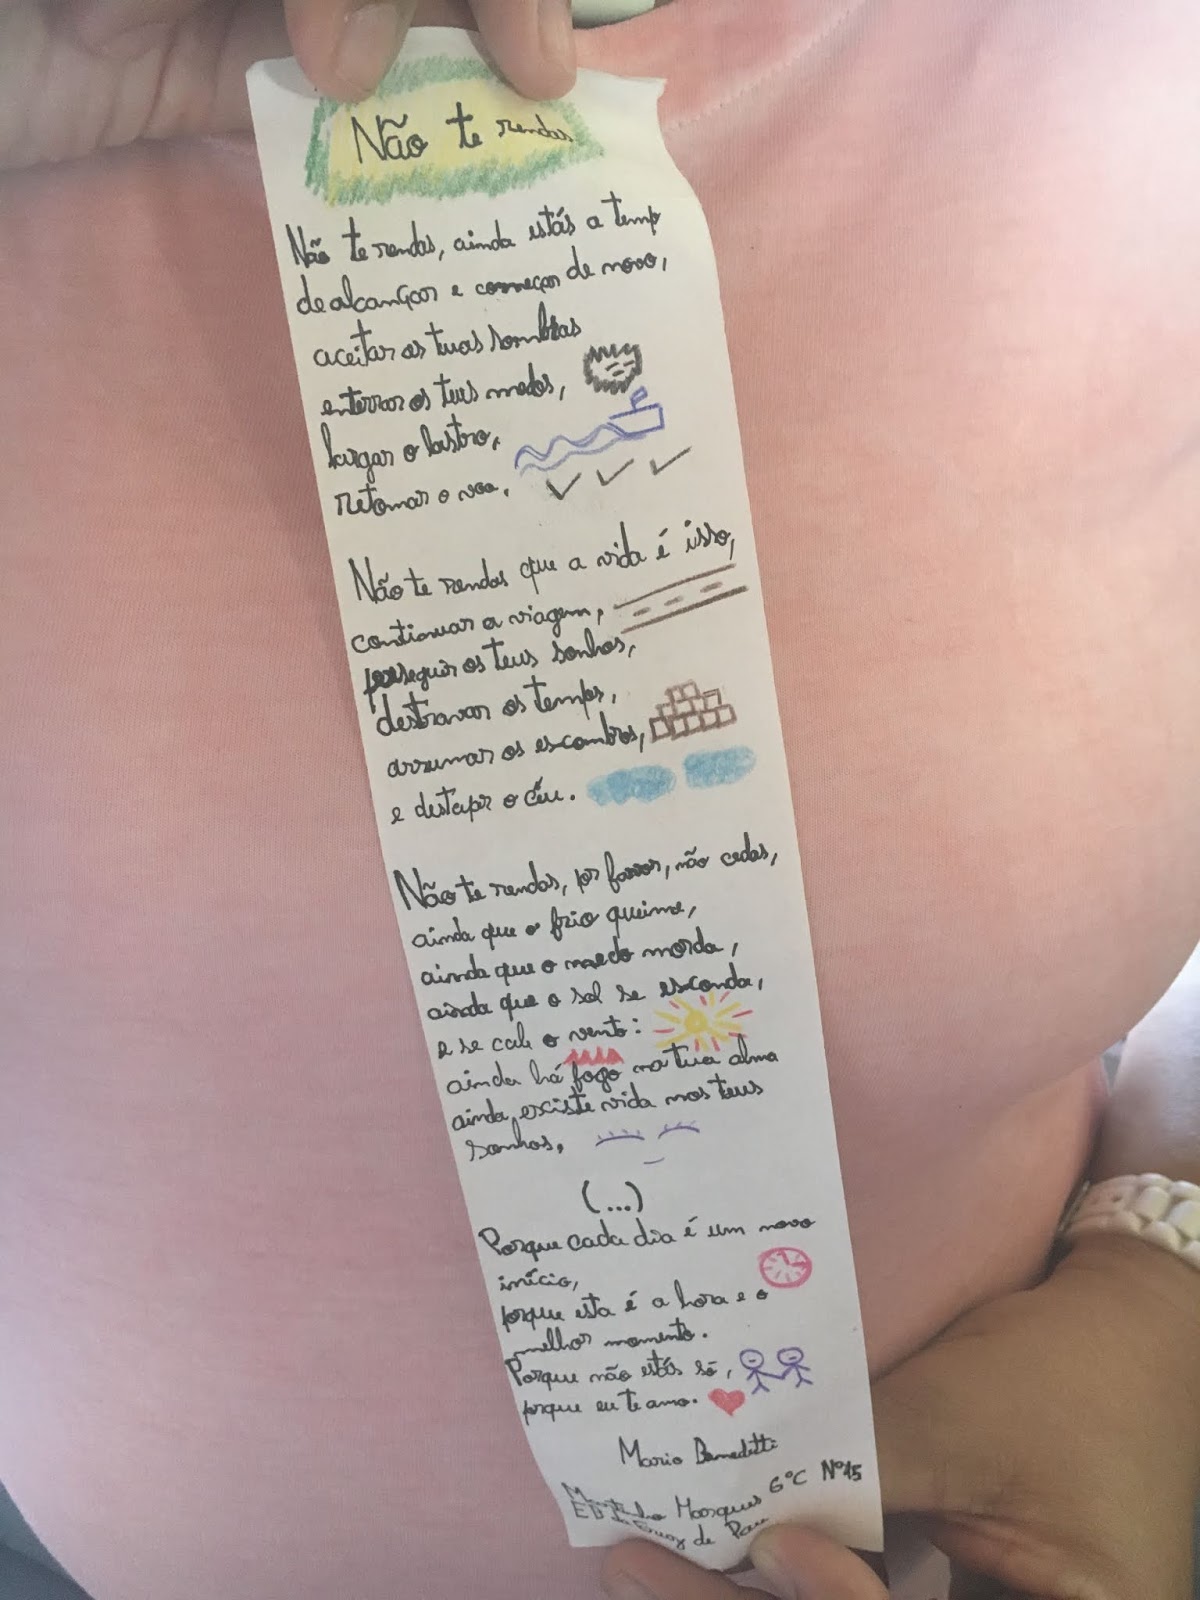 Não te rendas
Não te rendas, ainda estás a temp
de alcançar e começar de novo,
aceitar as tuas sombras
enterrar os teus medos,
largar o lastro,
retomar o voo.
Não te rendas que a vida é isso,
continuar a viagem,
perseguir os teus sonhos,
destravar os tempos,
arrumar os escombros,
e destapar o céu.
Não te rendas, por favor, não cedas,
ainda que o frio queime,
ainda que o medo morda,
ainda que o sol se esconda,
e se cale o vento:
ainda há fogo na tua alma
ainda existe vida nos teus
sonhos.
(...)
Porque cada dia é um novo
início,
porque esta é a hora e o
melhor momento.
Porque não estás só,
porque eu te amo.
Mario Benedetti
Marques 6ºC Nº15
de